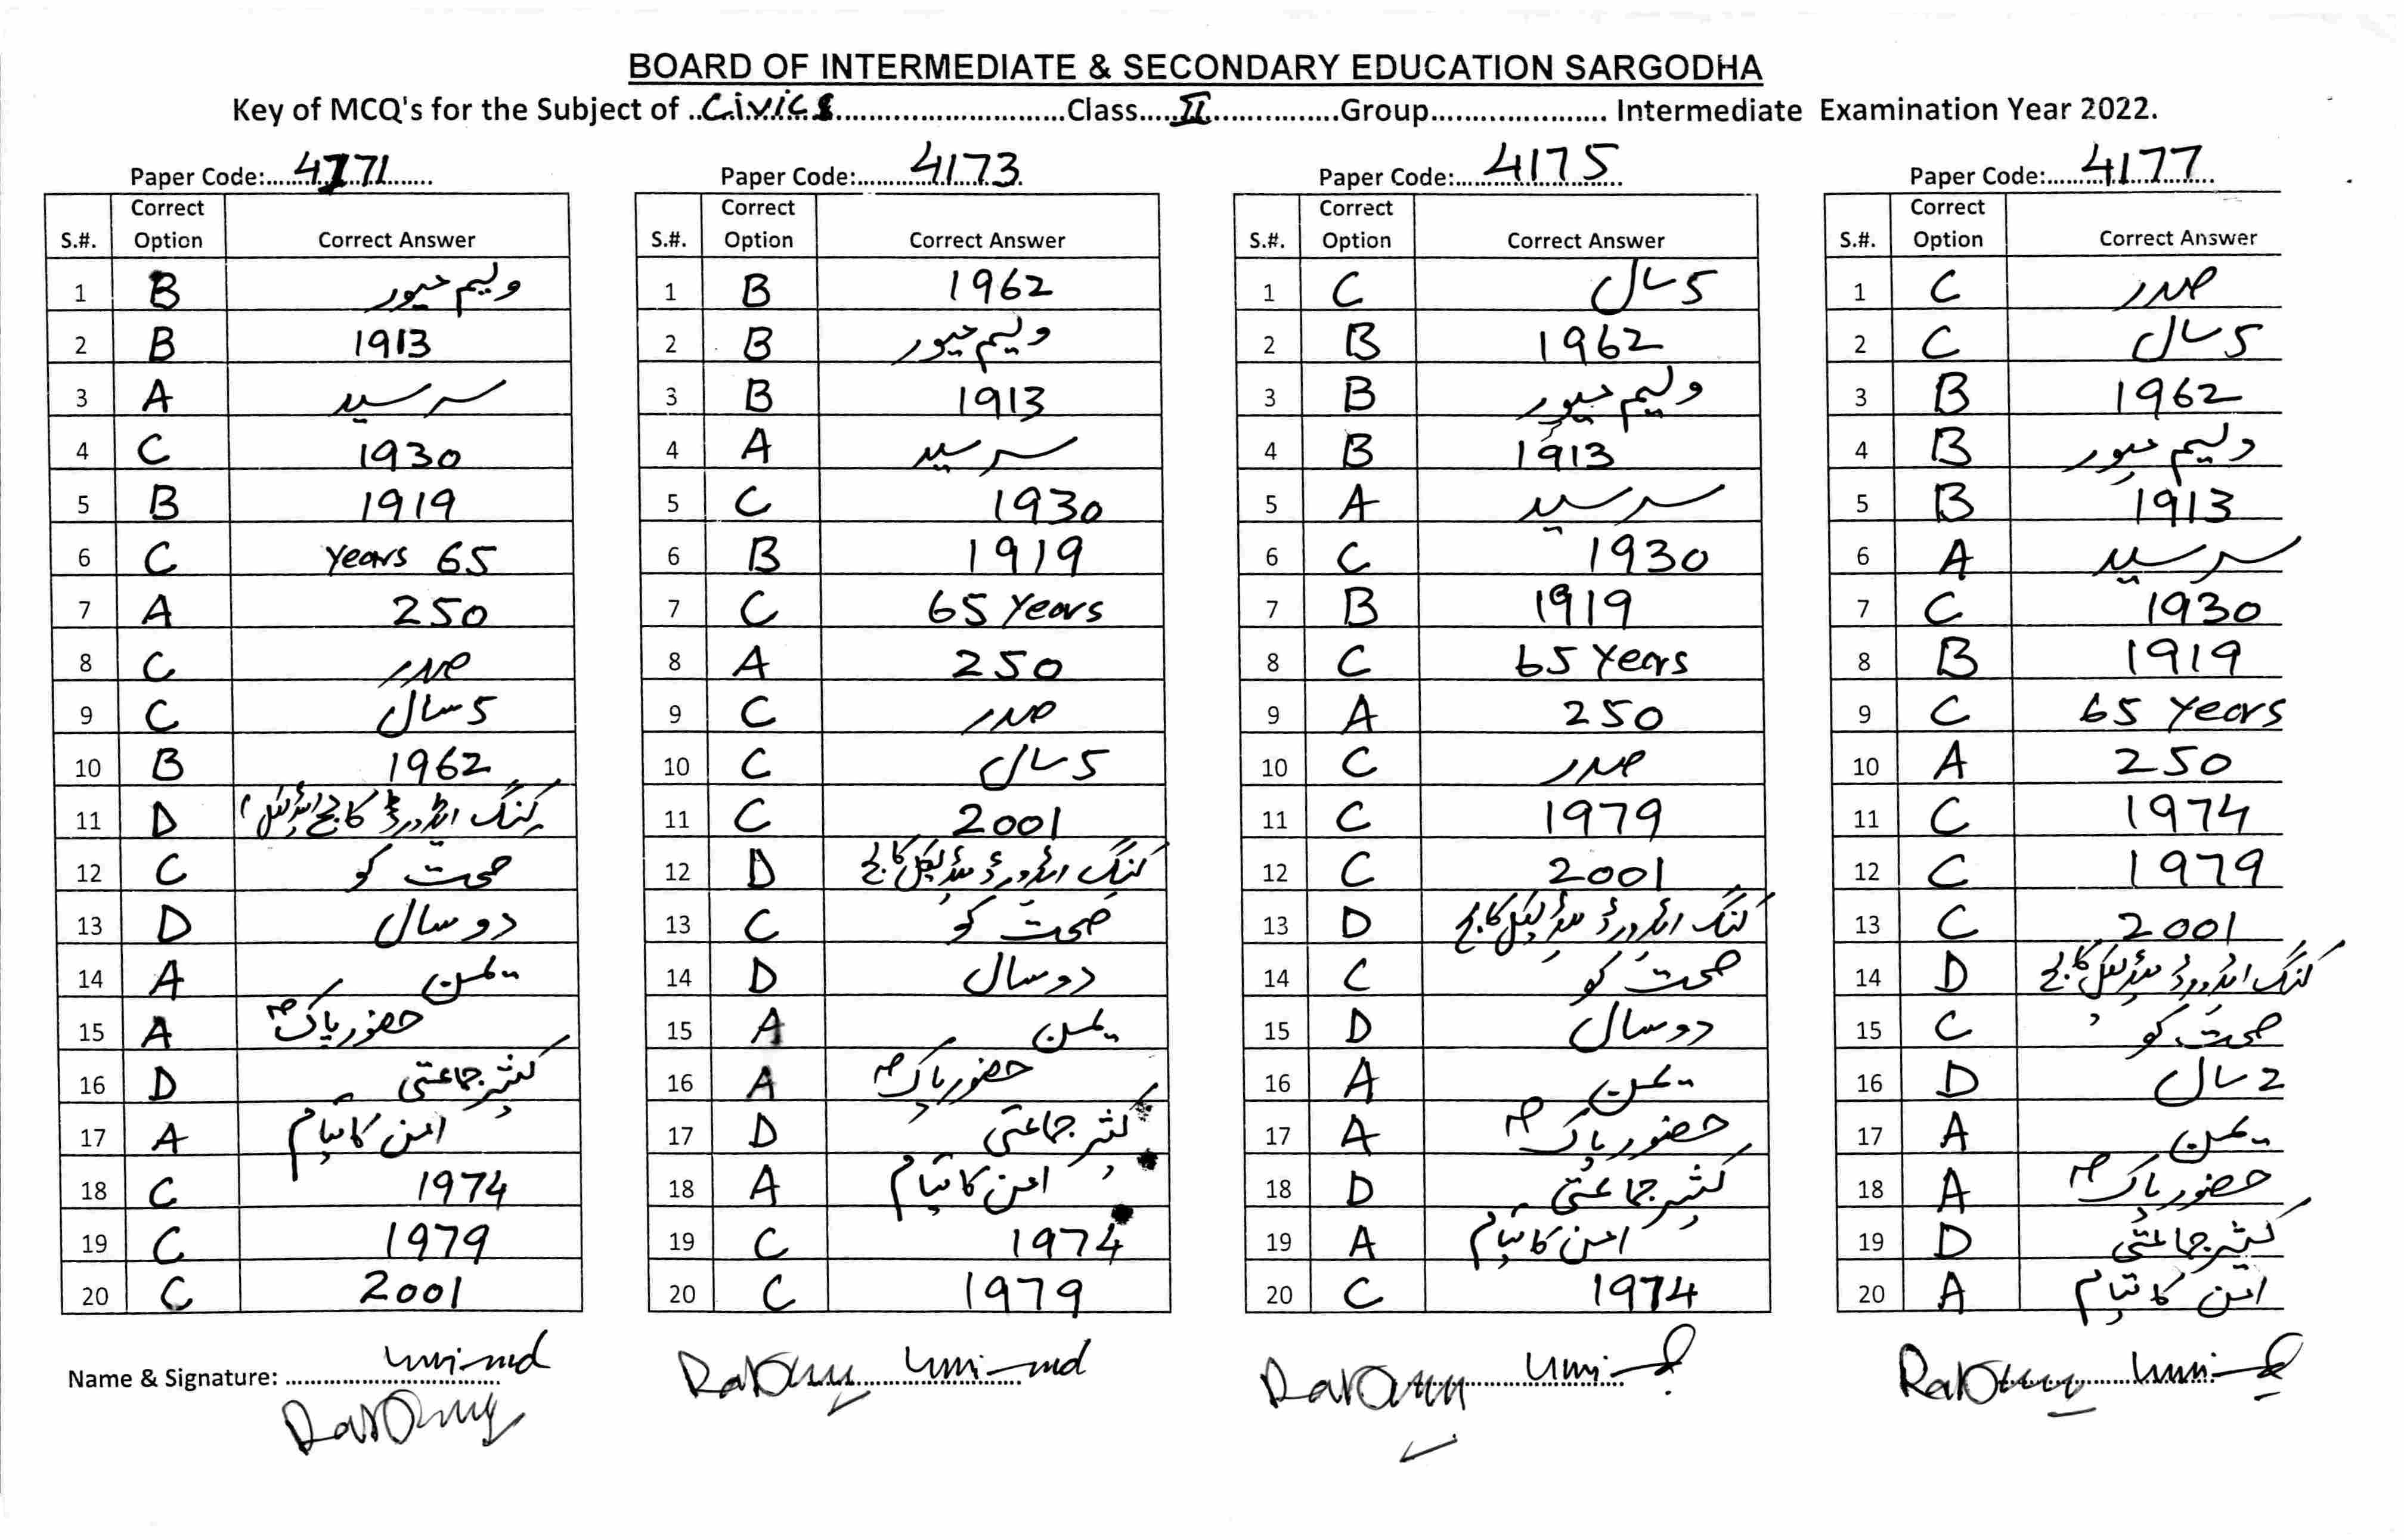 BOARD OF INTERMEDIATE & SECONDARY EDUCATION SARGODHA
Key of MCQ's for the Subject of ..Civics..............................Class.....II................Group...................... Intermediate Examination Year 2022.
Paper Code: 4171 Paper Code: 4173 Paper Code: 4175 Paper Code: 4177
S.#. Correct Option Correct Answer S.#. Correct Option Correct Answer S.#. Correct Option Correct Answer S.#. Correct Option Correct Answer
1 B ولیم میور 1 B 1962 1 C 5 سال 1 C صدر
2 B 1913 2 B ولیم میور 2 B 1962 2 C 5 سال
3 A سرسید 3 B 1913 3 B ولیم میور 3 B 1962
4 C 1930 4 A سرسید 4 B 1913 4 B ولیم میور
5 B 1919 5 C 1930 5 A سرسید 5 B 1913
6 C Years 65 6 B 1919 6 C 1930 6 A سرسید
7 A 250 7 C 65 Years 7 B 1919 7 C 1930
8 C صدر 8 A 250 8 C 65 Years 8 B 1919
9 C 5 سال 9 C صدر 9 A 250 9 C 65 Years
10 B 1962 10 C 5 سال 10 C صدر 10 A 250
11 D کنگ ایڈورڈ کالج 11 C 2001 11 C 1979 11 C 1974
12 C صحت کو 12 D کنگ ایڈورڈ میڈیکل کالج 12 C 2001 12 C 1979
13 D دو سال 13 C صحت کو 13 D کنگ ایڈورڈ میڈیکل کالج 13 C 2001
14 A یمن 14 D دو سال 14 C صحت کو 14 D کنگ ایڈورڈ میڈیکل کالج
15 A حضور پاکؐ 15 A یمن 15 D دو سال 15 C صحت کو
16 D کثیر جماعتی 16 A حضور پاکؐ 16 A یمن 16 D 2 سال
17 A امن کا قیام 17 D کثیر جماعتی 17 A حضور پاکؐ 17 A یمن
18 C 1974 18 A امن کا قیام 18 D کثیر جماعتی 18 A حضور پاکؐ
19 C 1979 19 C 1974 19 A امن کا قیام 19 D کثیر جماعتی
20 C 2001 20 C 1979 20 C 1974 20 A امن کا قیام
Name & Signature: